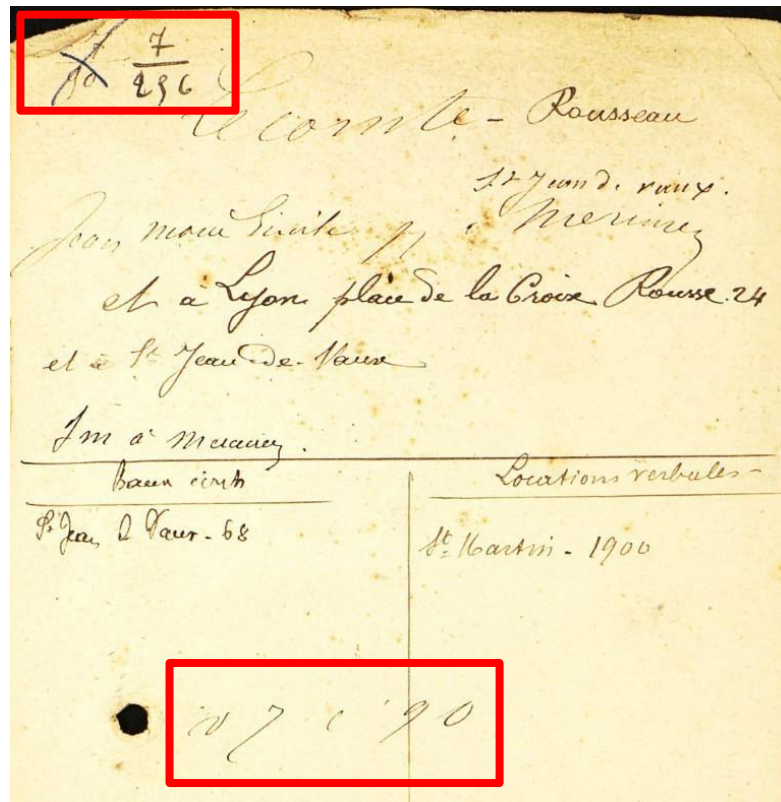 7
7
90 296
Lecomte - Rousseau
St Jean de vaux.
Jean marie Emile à Mercurey
et à Lyon place de la Croix Rousse. 24
et à St Jean-de-Vaux
Im à mercurey.
Baux écrits
Locations verbales -
St Jean de Vaux - 68
St Martin - 1900
v 7 c 90